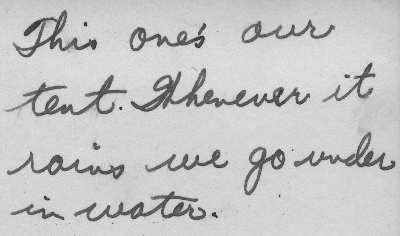 This one's our
tent. Whenever it
rains we go under
in water.